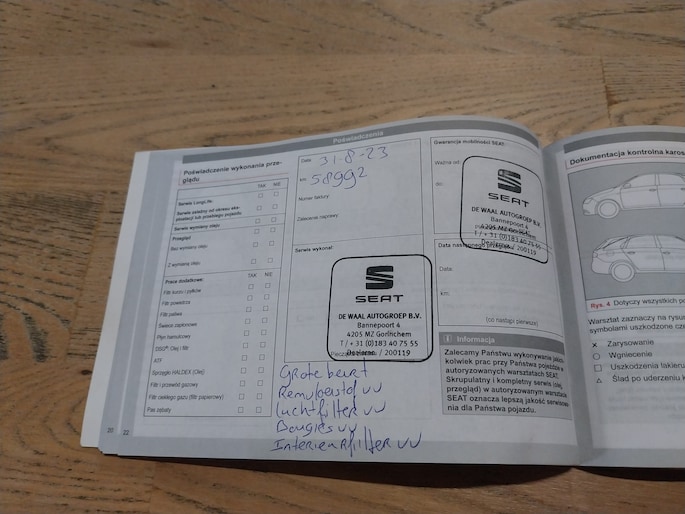 Poświadczenia
Poświadczenie wykonania prze-
glądu
TAK NIE
Serwis Longlife
Serwis zależny od okresu eks-
ploatacji lub przebiegu pojazdu
Serwis wymiany oleju
Przegląd
Bez wymiany oleju
Z wymianą oleju
Prace dodatkowe:
TAK NIE
Filtr kurzu i pyłków
Filtr powietrza
Filtr paliwa
Świece zapłonowe
Płyn hamulcowy
DSG® (Olej i filtr
ATF
Sprzęgło HALDEX (Olej)
Filtr i przewód gazowy
Filtr ciekłego gazu (filtr papierowy)
Pas zębaty
20 22
Data
31-8-23
km
58992
Numer faktury
Zalecenie naprawy
Serwis wykonał:
SEAT
DE WAAL AUTOGROEP B.V.
Bannepoort 4
4205 MZ Gorinchem
T / + 31 (0)183 40 75 55
Dealernr. / 200119
Grote beurt
Remvloeistof vv
Luchtfilter vv
Bougies vv
Interieurfilter vv
Gwarancja mobilności SEAT
Ważna od:
do:
SEAT
DE WAAL AUTOGROEP B.V.
Bannepoort 4
4205 MZ Gorinchem
T / + 31 (0)183 40 75 55
Dealernr. / 200119
Data następnego przeglądu
Data:
km.
(co nastąpi pierwsze)
Informacja
Zalecamy Państwu wykonywanie jakich-
kolwiek prac przy Państwa pojeździe w
autoryzowanych warsztatach SEAT.
Skrupulatny i kompletny serwis (olej,
przegląd) w autoryzowanym warsztacie
SEAT oznacza lepszą jakość serwisowa-
nia dla Państwa pojazdu.
Dokumentacja kontrolna karos
Rys. 4 Dotyczy wszystkich po
Warsztat zaznaczy na rysu
symbolami uszkodzone czę
× Zarysowanie
○ Wgniecenie
□ Uszkodzenia lakieru
△ Ślad po uderzeniu k